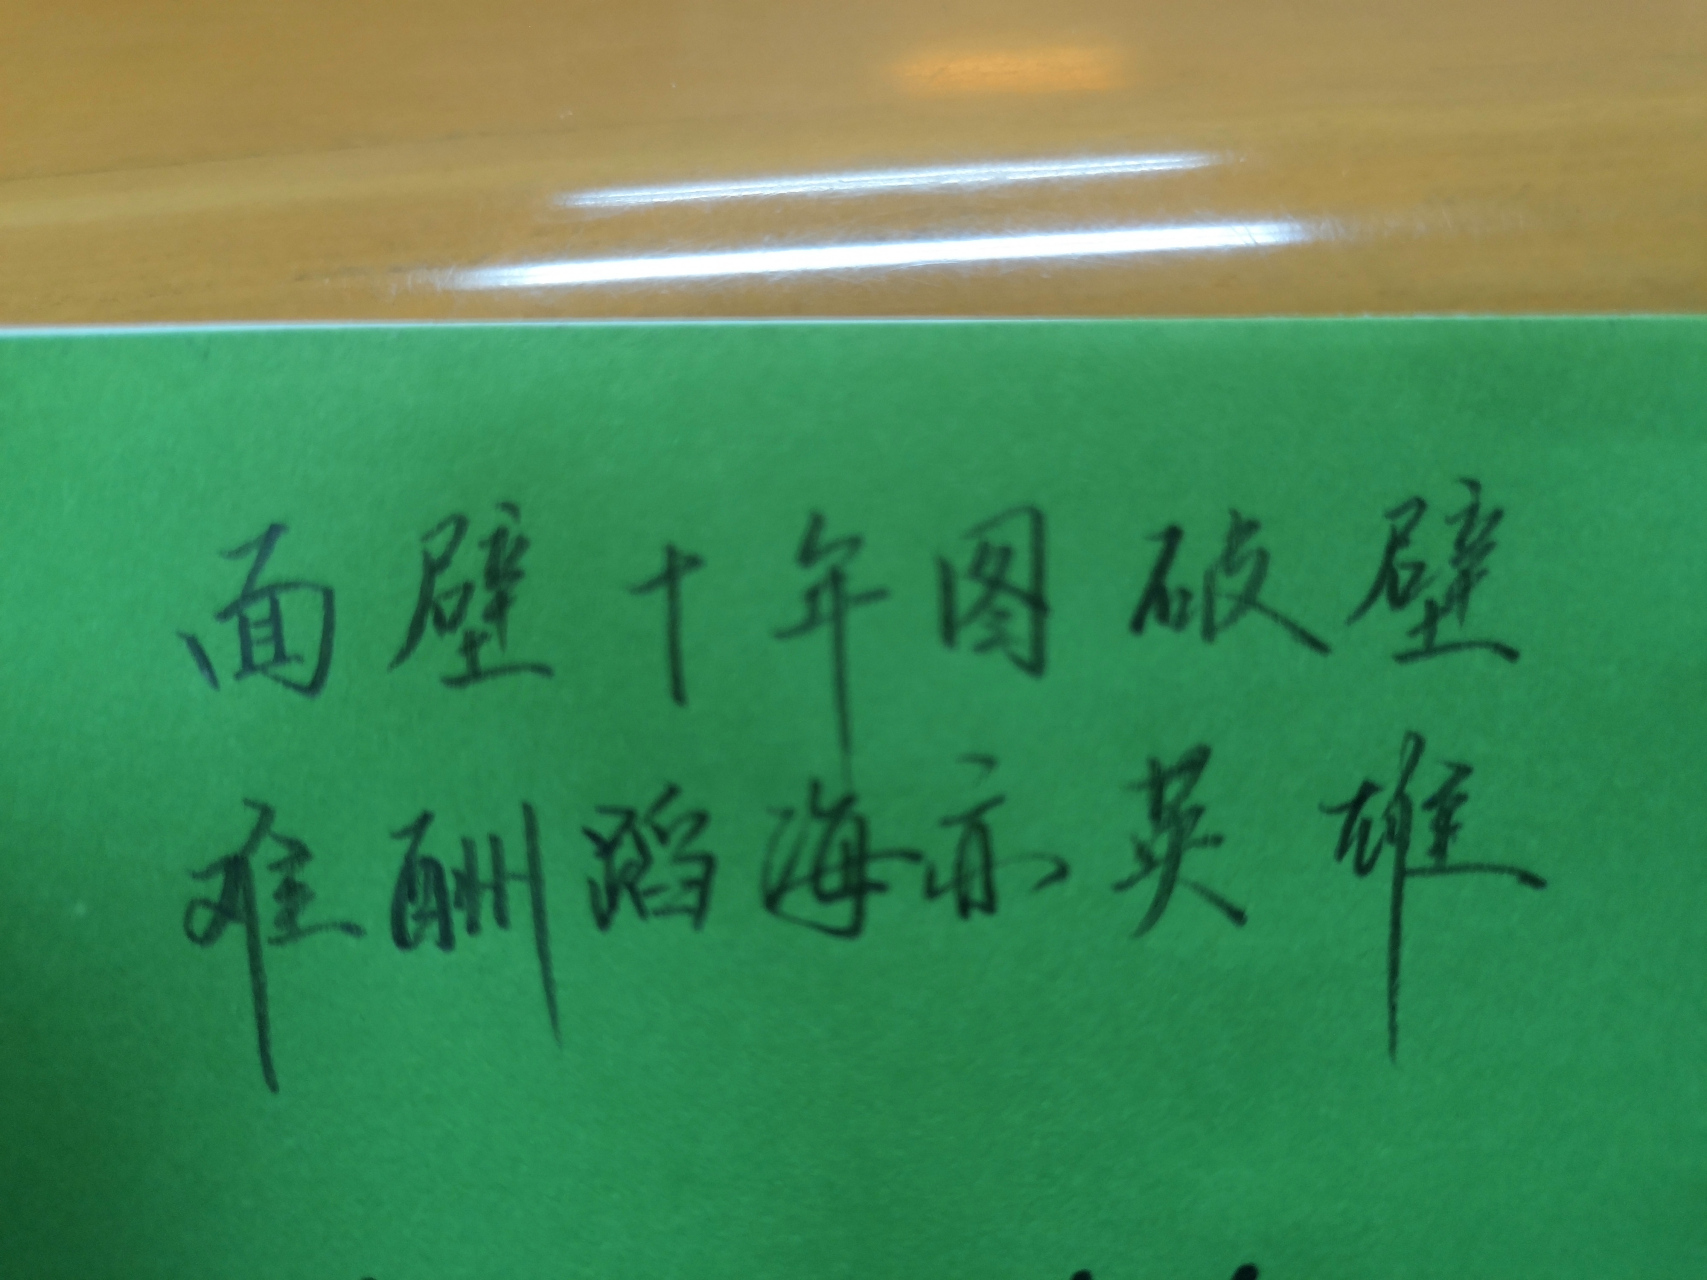 面壁十年图破壁
难酬蹈海亦英雄